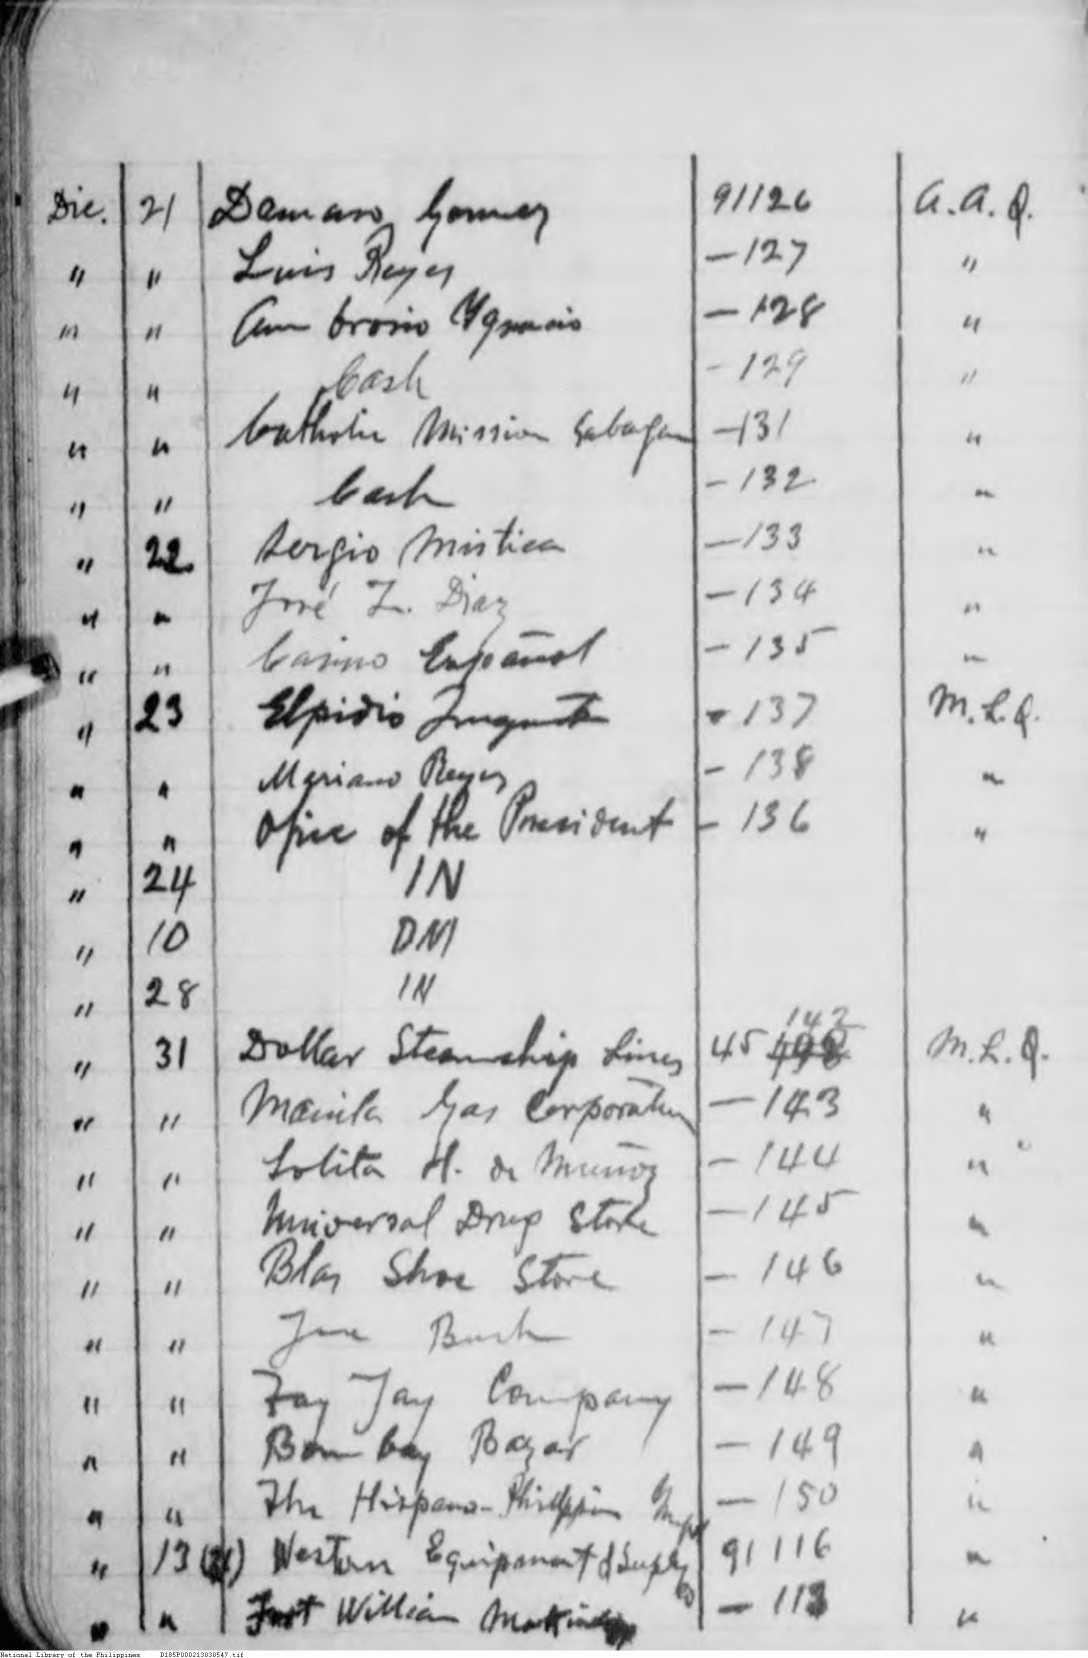 Dic. 21 Damaso Gomez 91126 A. A. Q.
" " Luis Reyes — 127 "
" " Ambrosio Ygnacio — 128 "
" " Cash — 129 "
" " Catholic Mission — 131 "
" " Cash — 132 "
" 22 Sergio Mistica — 133 "
" " José L. Diaz — 134 "
" " Casino Español — 135 "
" 23 Elpidio — 137 M. L. Q.
" " Mariano Reyes — 138 "
" " Ofice of the President — 136 "
" 24 IN
" 10 DM
" 28 IN
" 31 Dollar Steamship Lines 45 142 M. L. Q.
" " Manila Gas Corporation — 143 "
" " Lolita H. de Muñoz — 144 "
" " Universal Drug Store — 145 "
" " Blas Shoe Store — 146 "
" " — 147 "
" " Jay Company — 148 "
" " Bombay Bazar — 149 "
" " The Hispano-Philippin — 150 "
" 13 Western Equipment & Supply Co 91116 "
" " William "
National Library of the Philippines D185P000213030547.tif